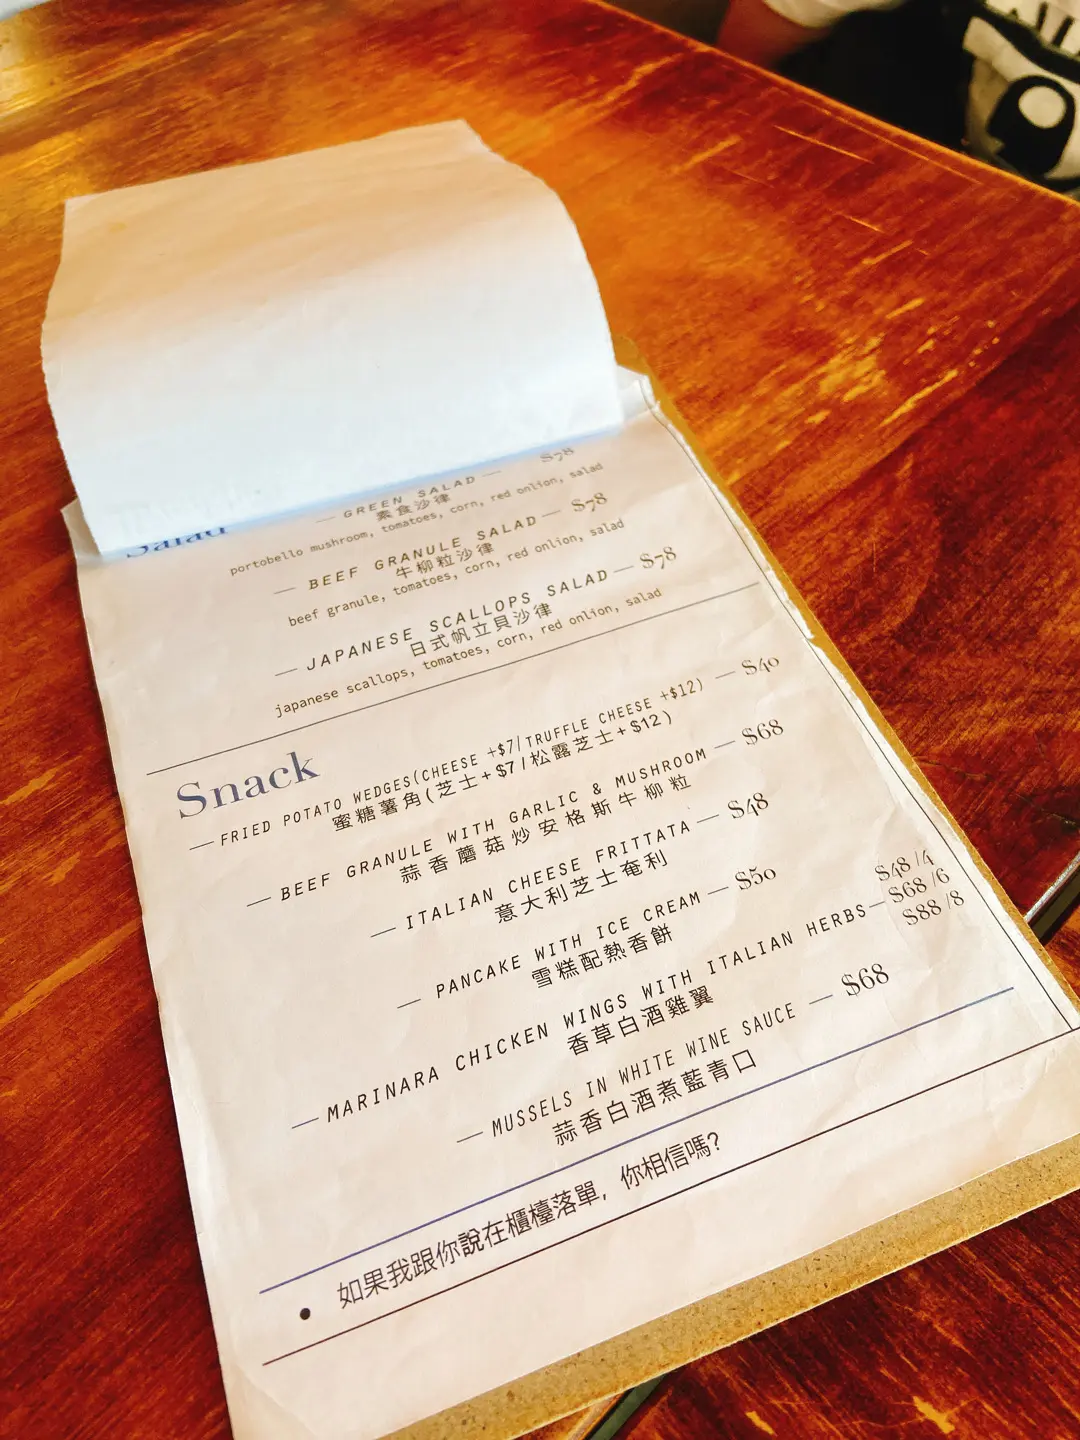 Salad
— GREEN SALAD — $78
素食沙律
portobello mushroom, tomatoes, corn, red onlion, salad
— BEEF GRANULE SALAD — $78
牛柳粒沙律
beef granule, tomatoes, corn, red onlion, salad
— JAPANESE SCALLOPS SALAD — $78
日式帆立貝沙律
japanese scallops, tomatoes, corn, red onlion, salad
Snack
— FRIED POTATO WEDGES(CHEESE +$7/TRUFFLE CHEESE +$12) — $40
蜜糖薯角(芝士+$7/松露芝士+$12)
— BEEF GRANULE WITH GARLIC & MUSHROOM — $68
蒜香蘑菇炒安格斯牛柳粒
— ITALIAN CHEESE FRITTATA — $48
意大利芝士奄利
— PANCAKE WITH ICE CREAM — $50
雪糕配熱香餅
— MARINARA CHICKEN WINGS WITH ITALIAN HERBS — $48/4
$68/6
$88/8
香草白酒雞翼
— MUSSELS IN WHITE WINE SAUCE — $68
蒜香白酒煮藍青口
• 如果我跟你說在櫃檯落單, 你相信嗎?